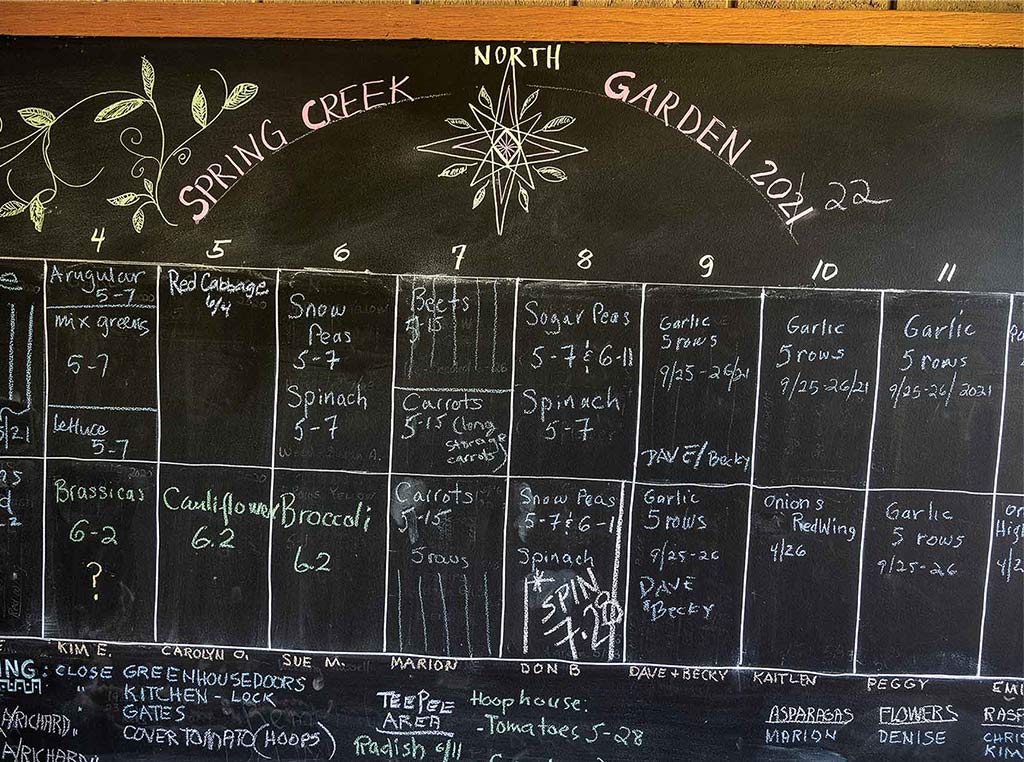 NORTH
SPRING CREEK GARDEN 2021/22
4 5 6 7 8 9 10 11
Arugular
5-7
mix greens
5-7
lettuce
5-7
Red Cabbage
6/4
Snow
Peas
5-7
Spinach
5-7
Beets
5-15
Carrots
5-15 (long
storage
carrots)
Sogar Peas
5-7 & 6-11
Spinach
5-7
Garlic
5 rows
9/25-26/21
DAVE/Becky
Garlic
5 rows
9/25-26/21
Garlic
5 rows
9/25-26/2021
Brassicas
6-2
?
Cauliflower
6.2
Broccoli
6.2
Carrots
5-15
5 rows
Snow Peas
5-7 & 6-1
Spinach
*SPIN
7.28
Garlic
5 rows
9/25-26
DAVE
& Becky
Onions
RedWing
4/26
Garlic
5 rows
9/25-26
KIM E. CAROLYN O. SUE M. MARION DON B DAVE + BECKY KAITLEN PEGGY
CLOSE GREENHOUSE DOORS
" KITCHEN - LOCK
GATES
COVER TOMATO (HOOPS)
A/RICHARD"
A/RICHARD"
TEEPEE
AREA
Radish 6/11
Hoop house:
- Tomatoes 5-28
ASPARAGAS
MARION
FLOWERS
DENISE